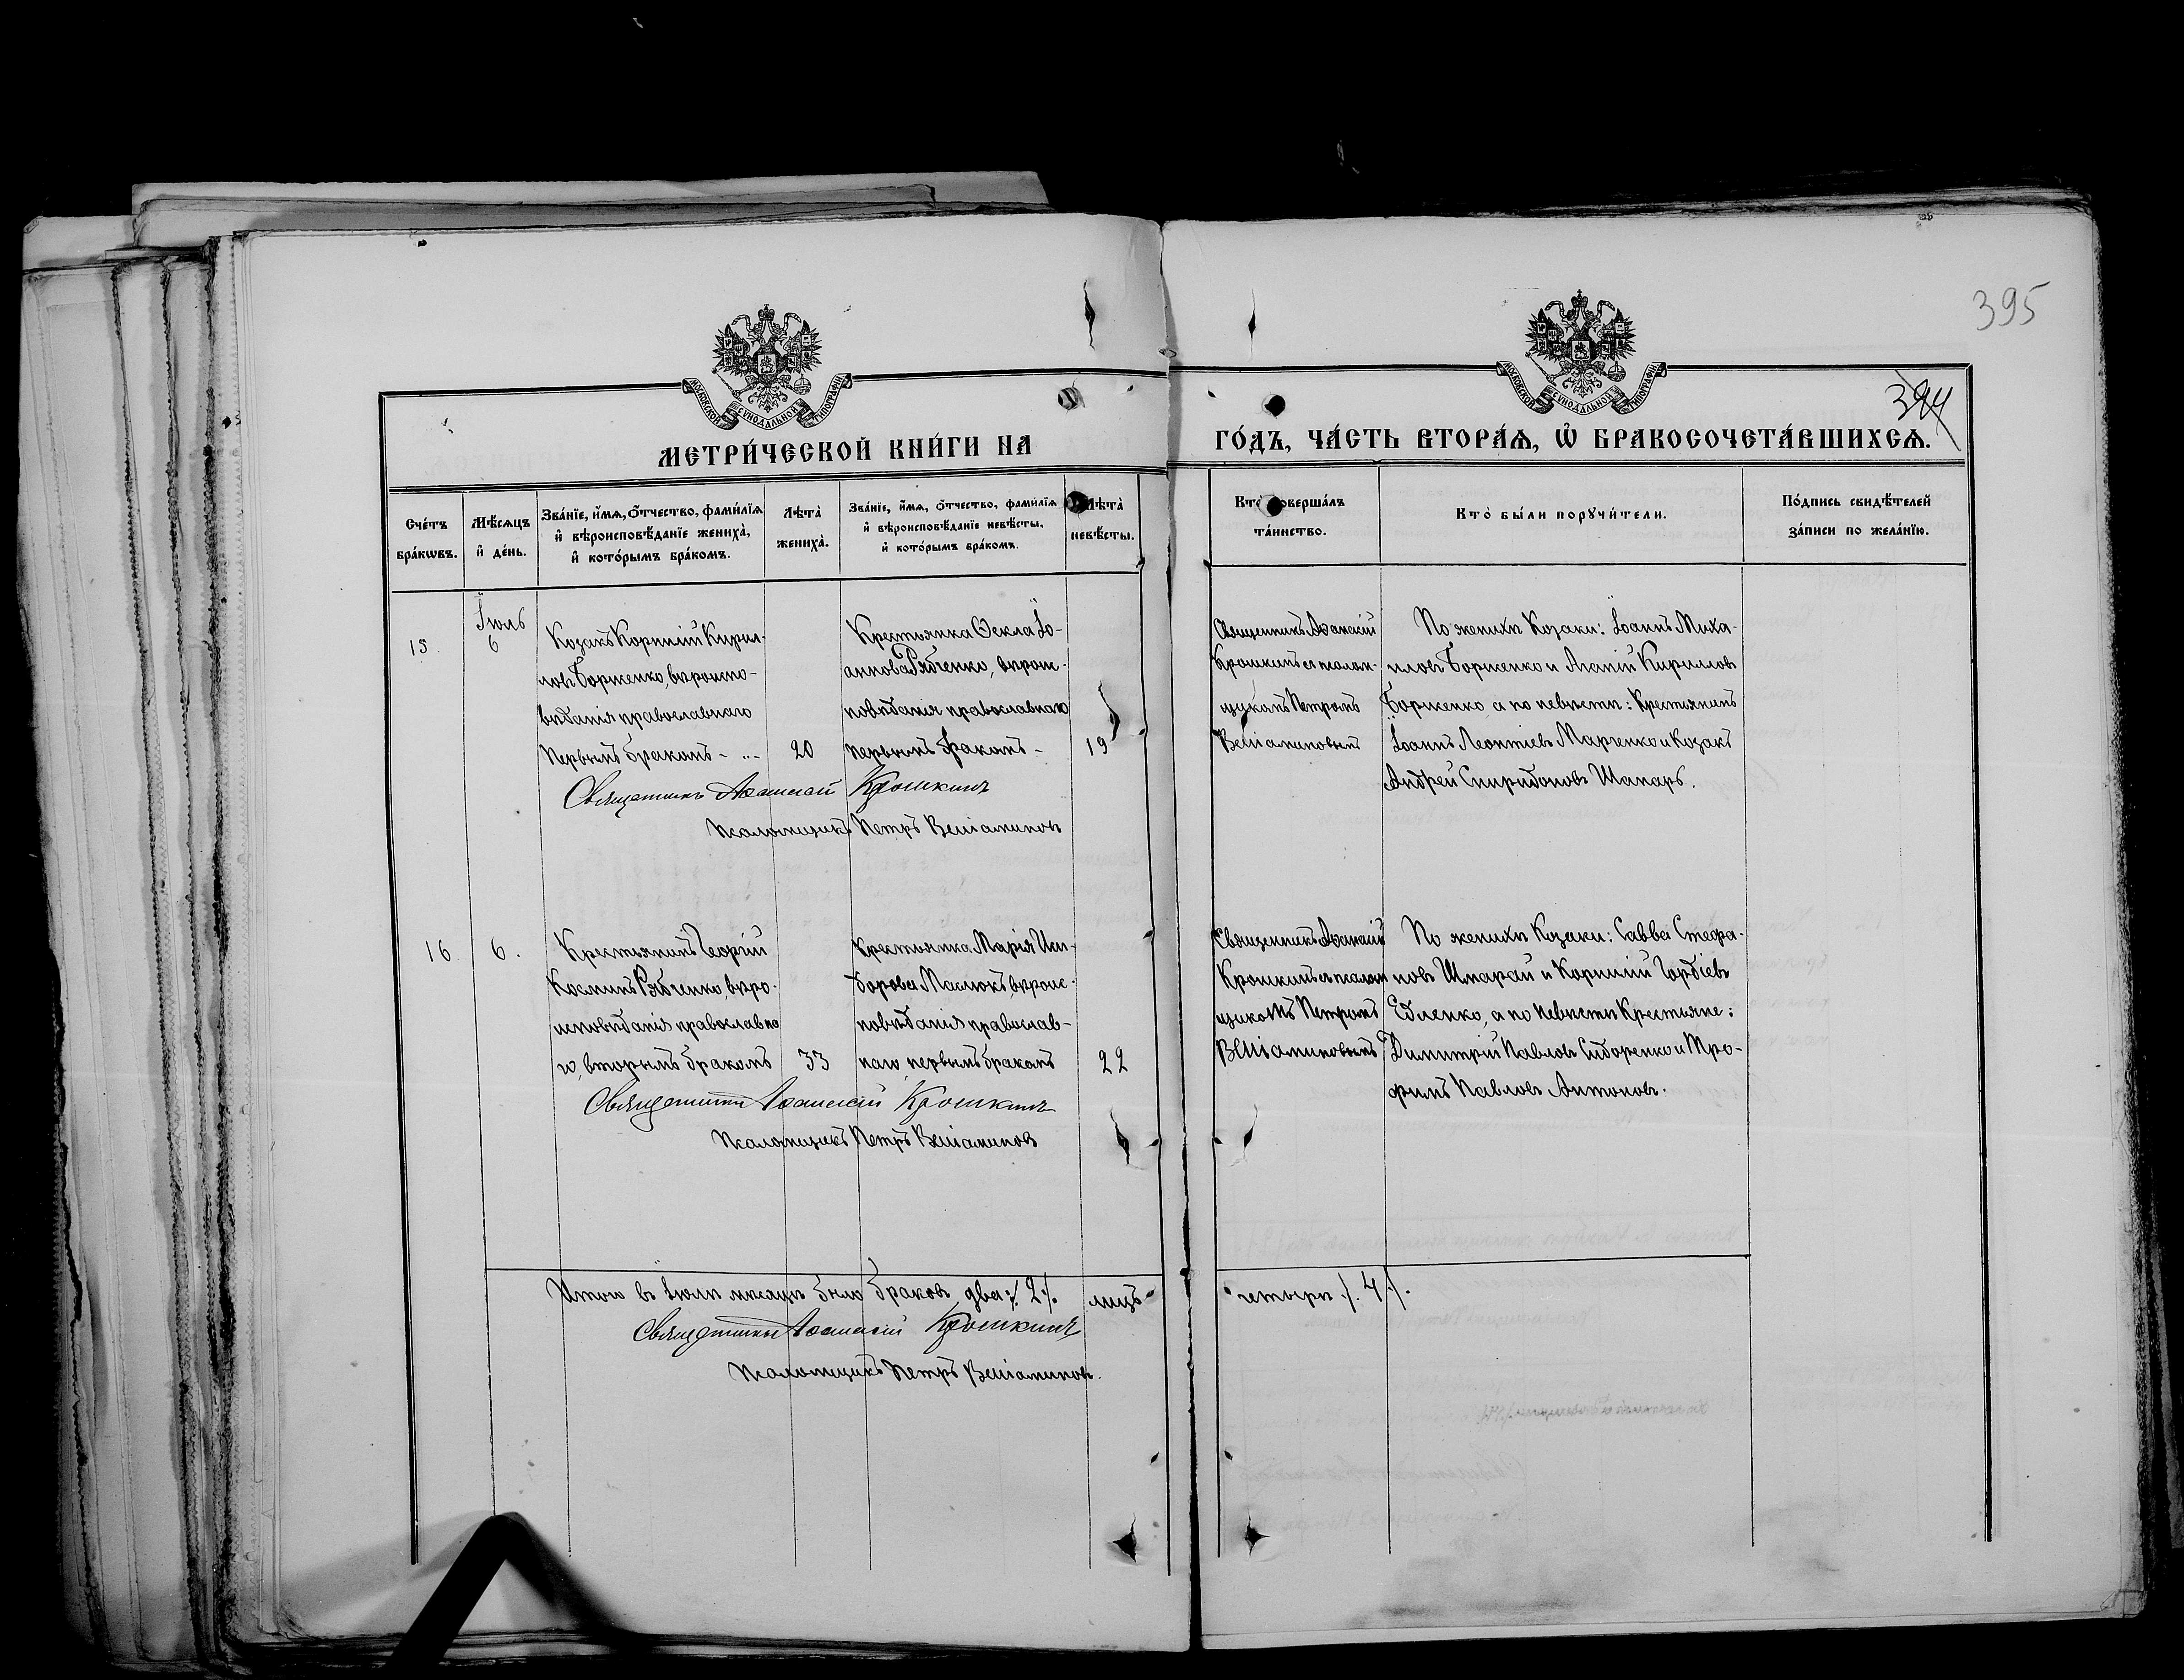 395
394
МОСКОВСКОЙ СѴНОДАЛЬНОЙ ТИПОГРАФІИ
МОСКОВСКОЙ СѴНОДАЛЬНОЙ ТИПОГРАФІИ
МЕТРИ́ЧЕСКОЙ КНИ́ГИ НА
ГО́ДЪ, ЧА́СТЬ ВТОРА́Ѧ, Ѡ҆ БРАКОСОЧЕТА́ВШИХСѦ.
Сче́тъ
бра́кѡвъ.
Мѣ́сѧцъ
и҆ де́нь.
Зва́нїе, и҆́мѧ, ѻ҆́тчество, фами́лїѧ
и҆ вѣроисповѣ́данїе жениха̀,
и҆ кото́рымъ бра́комъ.
Лѣта̀
жениха̀.
Зва́нїе, и҆́мѧ, ѻ҆́тчество, фами́лїѧ
и҆ вѣроисповѣ́данїе невѣ́сты,
и҆ кото́рымъ бра́комъ.
Лѣта̀
невѣ́сты.
Кто̀ соверша́лъ
та́инство.
Кто̀ бы́ли порꙋчи́тели.
По́дпись свидѣ́телей
за́писи по жела́нїю.
15.
Іюль
6
Козакъ Корнилій Кирил-
ловъ Борженко, вѣроиспо-
вѣданія православнаго
первымъ бракомъ
20
Крестьянка Ѳекла Іо-
аннова Рябченко, вѣроис-
повѣданія православнаго
первымъ бракомъ
19
Священникъ Аѳанасій
Крошкинъ съ псалом-
щикомъ Петромъ
Веніаминовымъ
По женихѣ Козаки: Іоаннъ Миха-
иловъ Борженко и Агапій Кирилловъ
Борженко, а по невѣстѣ: Крестьянинъ
Іоаннъ Леонтіевъ Марченко и Козакъ
Андрей Спиридоновъ Шапаръ.
Священникъ Аѳанасій Крошкинъ
Псаломщикъ Петръ Веніаминовъ
16.
6.
Крестьянинъ Георгій
Косминъ Рябченко, вѣро-
исповѣданія православна
го, вторымъ бракомъ
33
Крестьянка Марія Иси-
дорова Маслюкъ, вѣроис-
повѣданія православ-
наго, первымъ бракомъ
22
Священникъ Аѳанасій
Крошкинъ съ псалом
щикомъ Петромъ
Веніаминовымъ
По женихѣ Козаки: Савва Стефа-
новъ Шпарай и Корнилій Гордіевъ
Едленко, а по невѣстѣ Крестьяне:
Димитрій Павловъ Сидоренко и Тро-
фимъ Павловъ Антоновъ.
Священникъ Аѳанасій Крошкинъ
Псаломщикъ Петръ Веніаминовъ
Итого въ Іюлѣ мѣсяцѣ было браковъ два ./. 2 ./. лицъ
четыре ./. 4 ./.
Священникъ Аѳанасій Крошкинъ
Псаломщикъ Петръ Веніаминовъ.